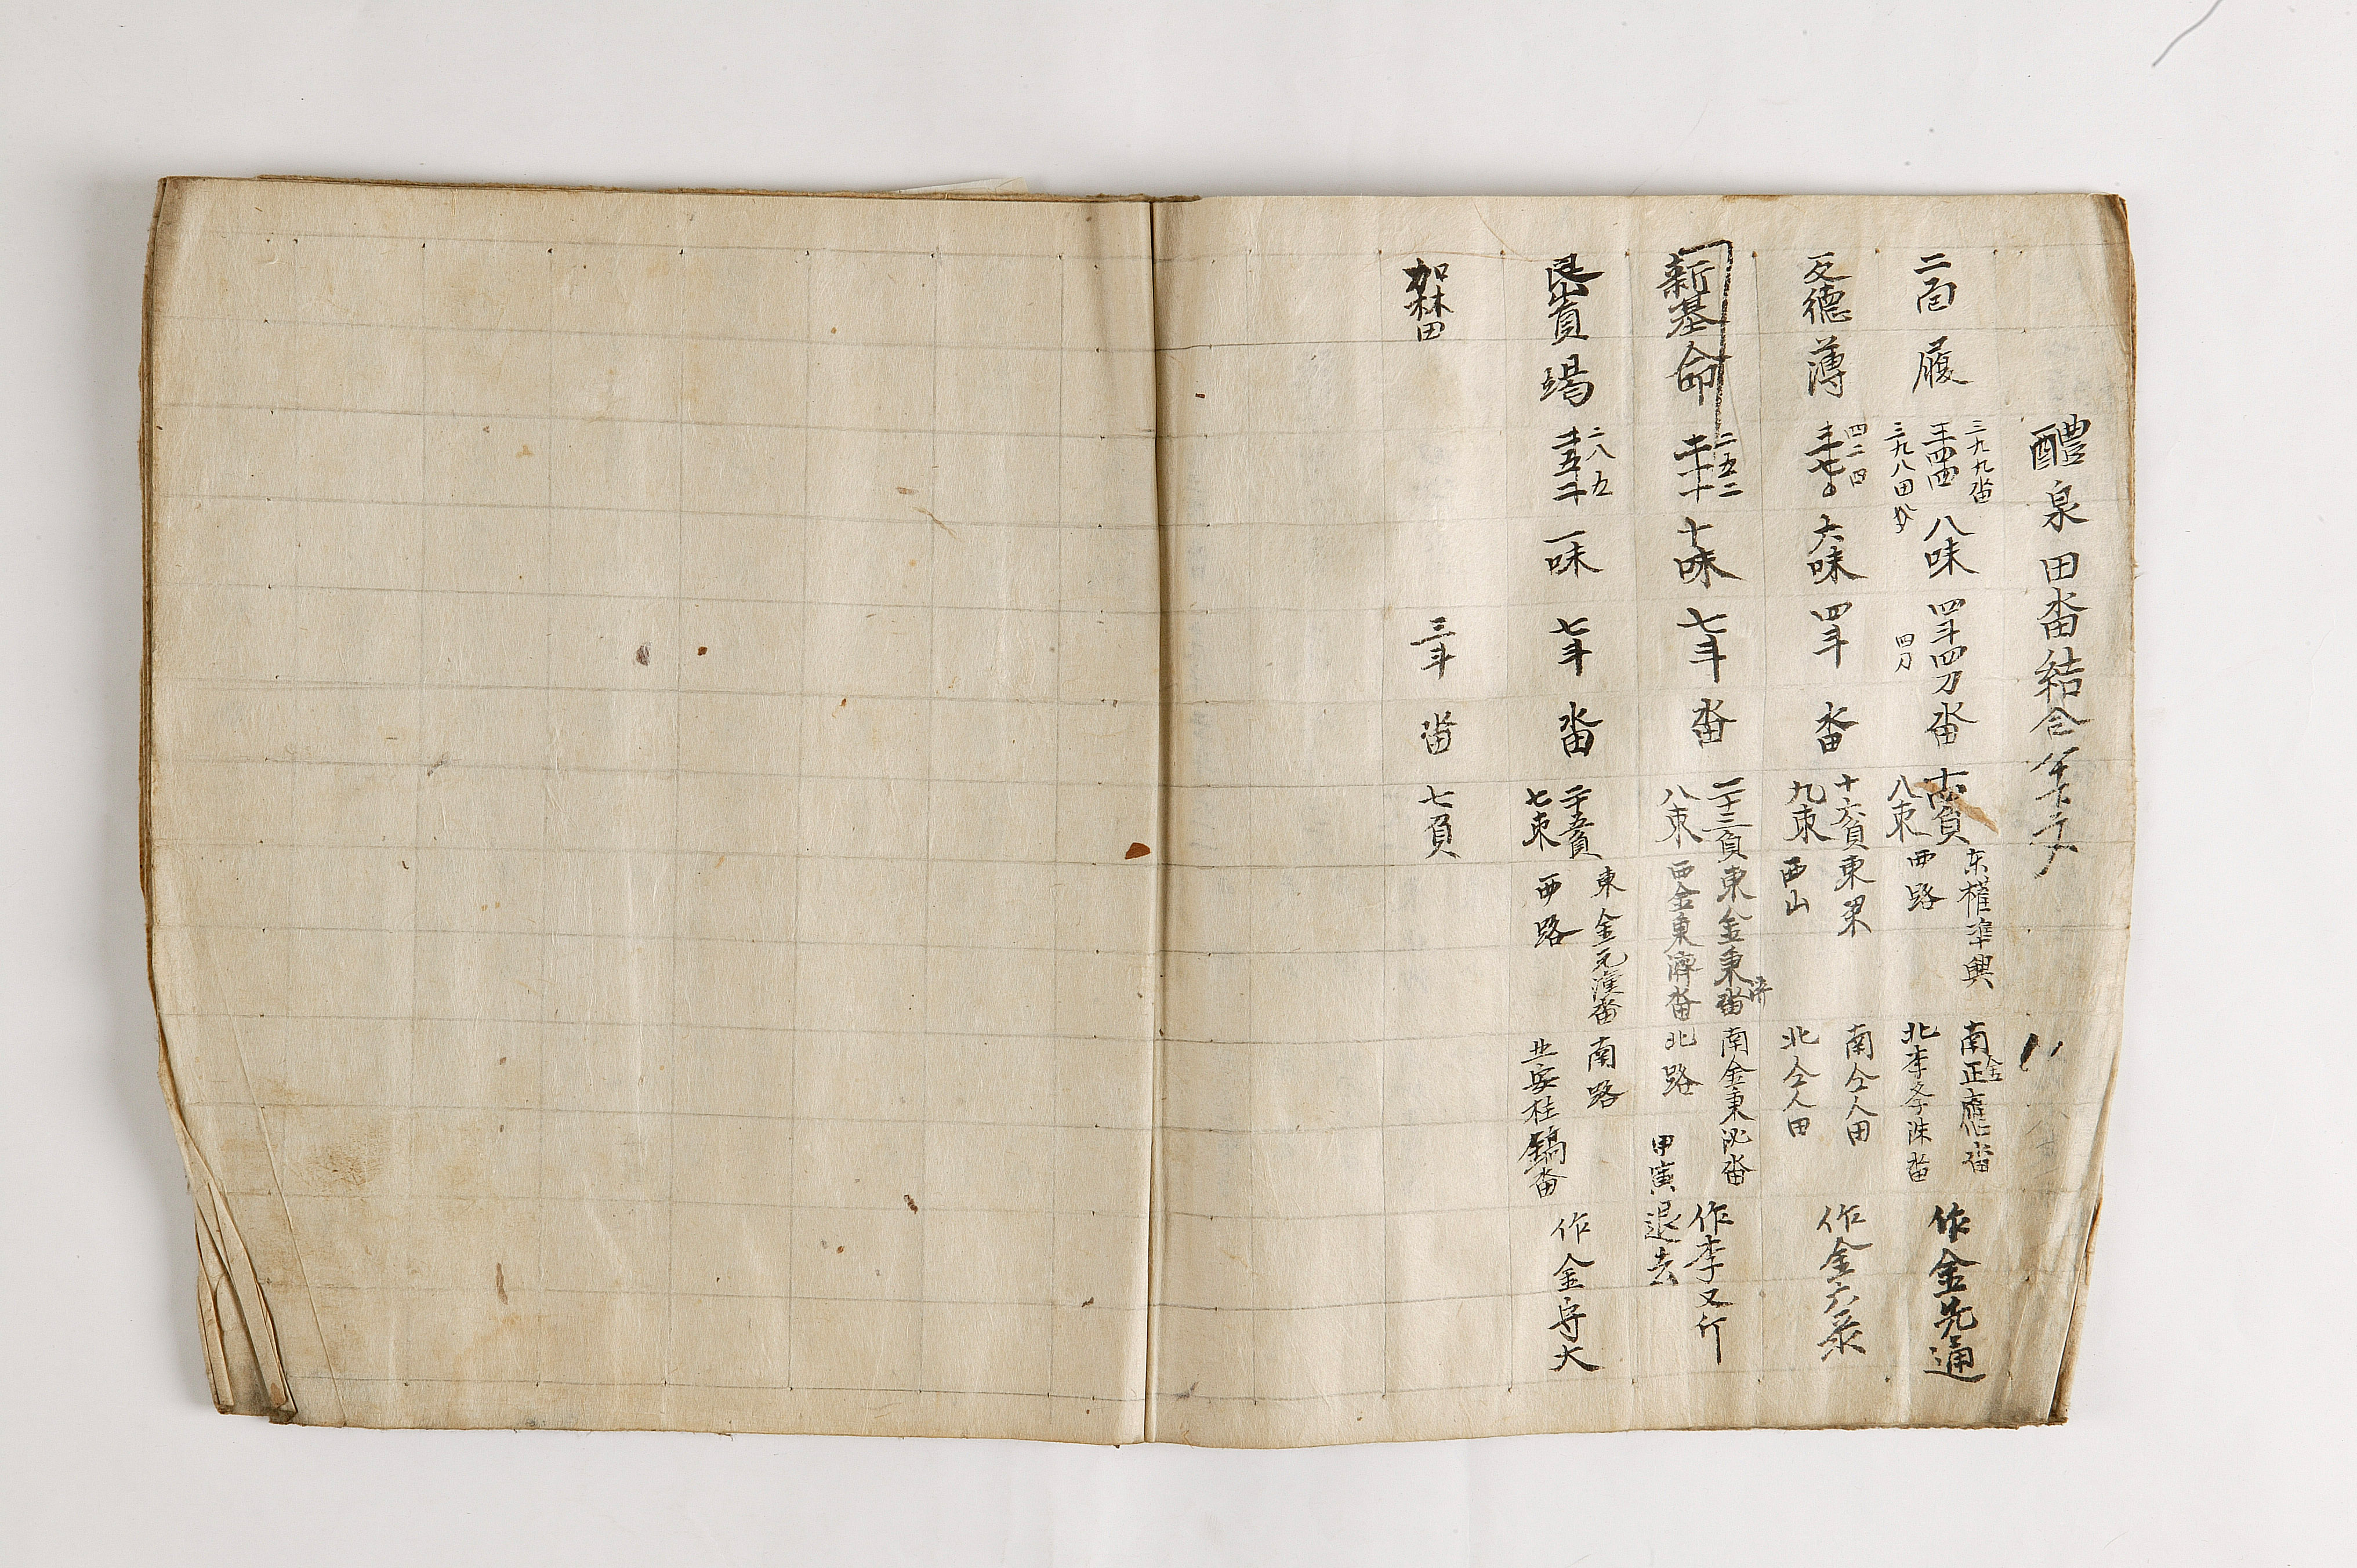 醴泉田畓結仝
二直 履 三九九畓 三九八田 八味 四斗四刀 四刀 畓 負 八束 东權準興 西路 南金正應畓 北李冬洙畓 作金先通
反德 薄 四二四 六味 四斗 畓 十六負 九束 東渠 西山 南仝人田 北仝人田 作金六彔
新基 命 二五二 十味 七斗 畓 二十三負 八束 東金秉濟畓 西金東濟畓 南金秉泌畓 北路 作李又行 甲寅退去
場 二八五 一味 七斗 畓 二十五負 七束 東金元漢畓 西路 南路 北安桂鎬畓 作金守大
加林田 三斗 畓 七負